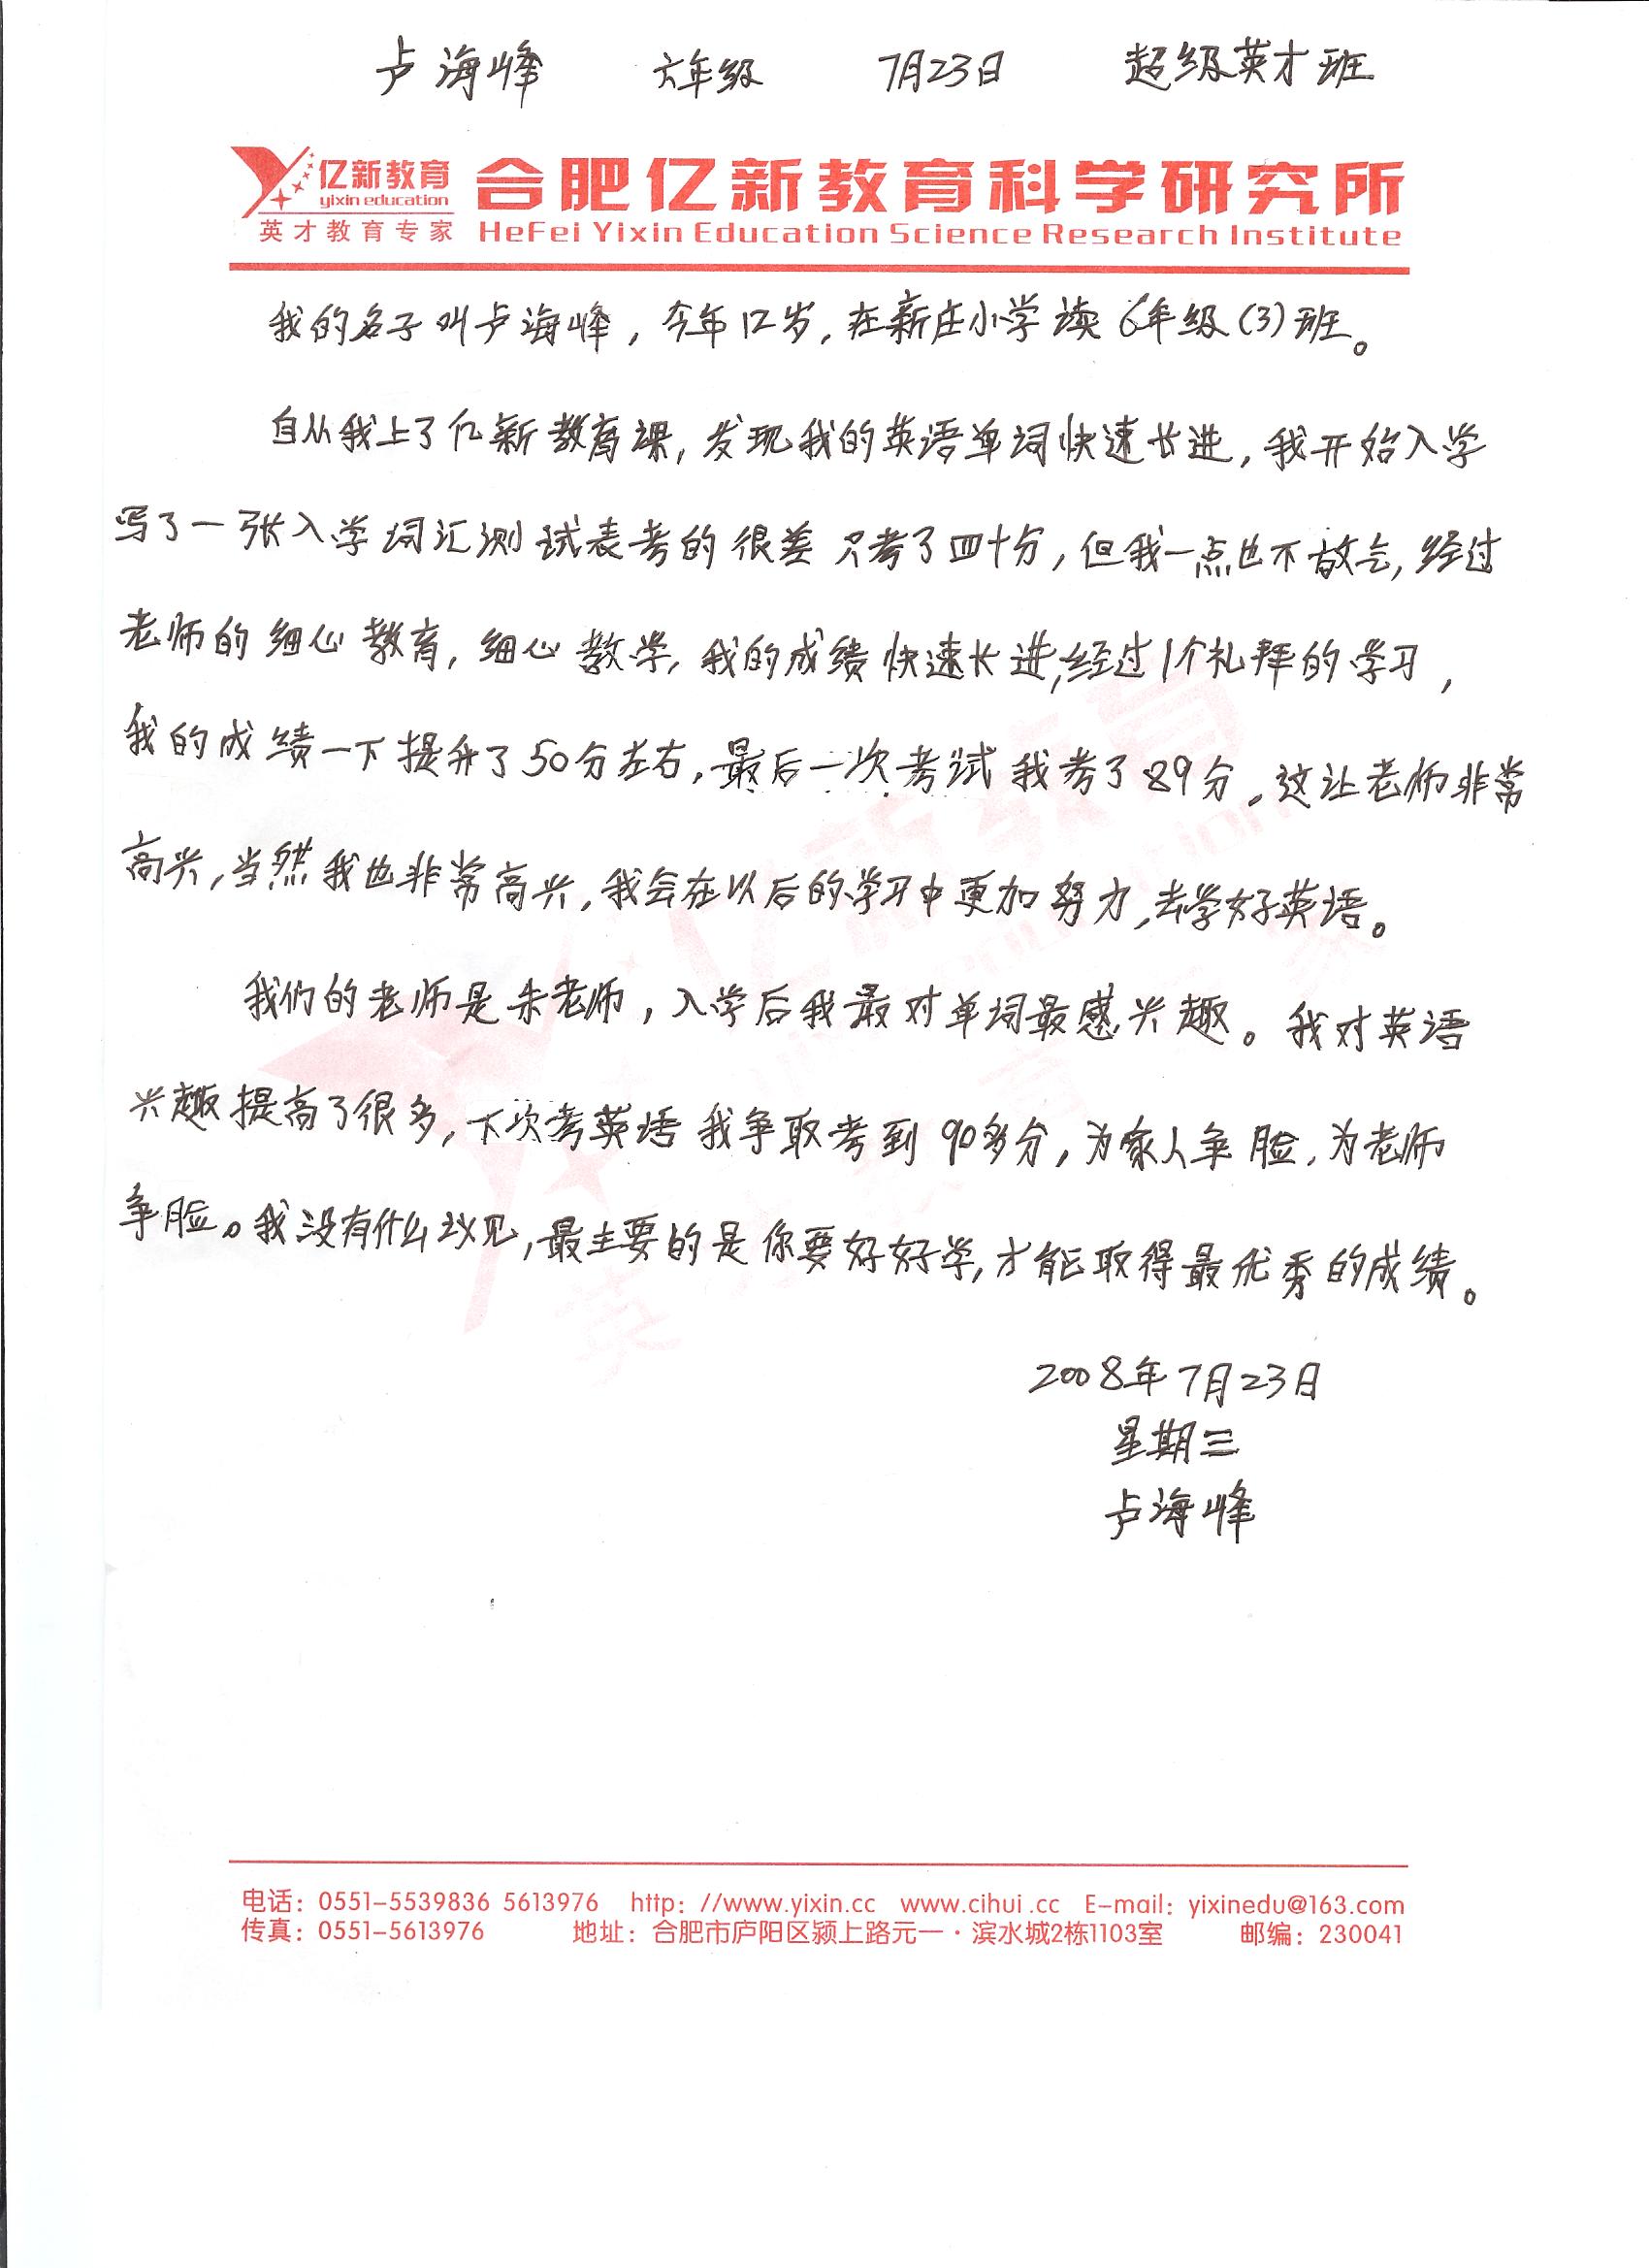 卢海峰 六年级 7月23日 超级英才班
亿新教育 合肥亿新教育科学研究所
yixin education
英才教育专家 HeFei Yixin Education Science Research Institute
我的名子叫卢海峰，今年12岁，在新庄小学读6年级(3)班。
自从我上了亿新教育课，发现我的英语单词快速长进，我开始入学
写了一张入学词汇测试表考的很差只考了四十分，但我一点也不放弃，经过
老师的细心教育，细心教学，我的成绩快速长进，经过1个礼拜的学习，
我的成绩一下提升了50分左右，最后一次考试我考了89分。这让老师非常
高兴，当然我也非常高兴，我会在以后的学习中更加努力，去学好英语。
我们的老师是朱老师，入学后我最对单词最感兴趣。我对英语
兴趣提高了很多，下次考英语我争取考到90多分，为家人争脸，为老师
争脸。我没有什么议见，最主要的是你要好好学，才能取得最优秀的成绩。
2008年7月23日
星期三
卢海峰
电话：0551-5539836 5613976 http：//www.yixin.cc www.cihui.cc E-mail：yixinedu@163.com
传真：0551-5613976 地址：合肥市庐阳区颍上路元一·滨水城2栋1103室 邮编：230041